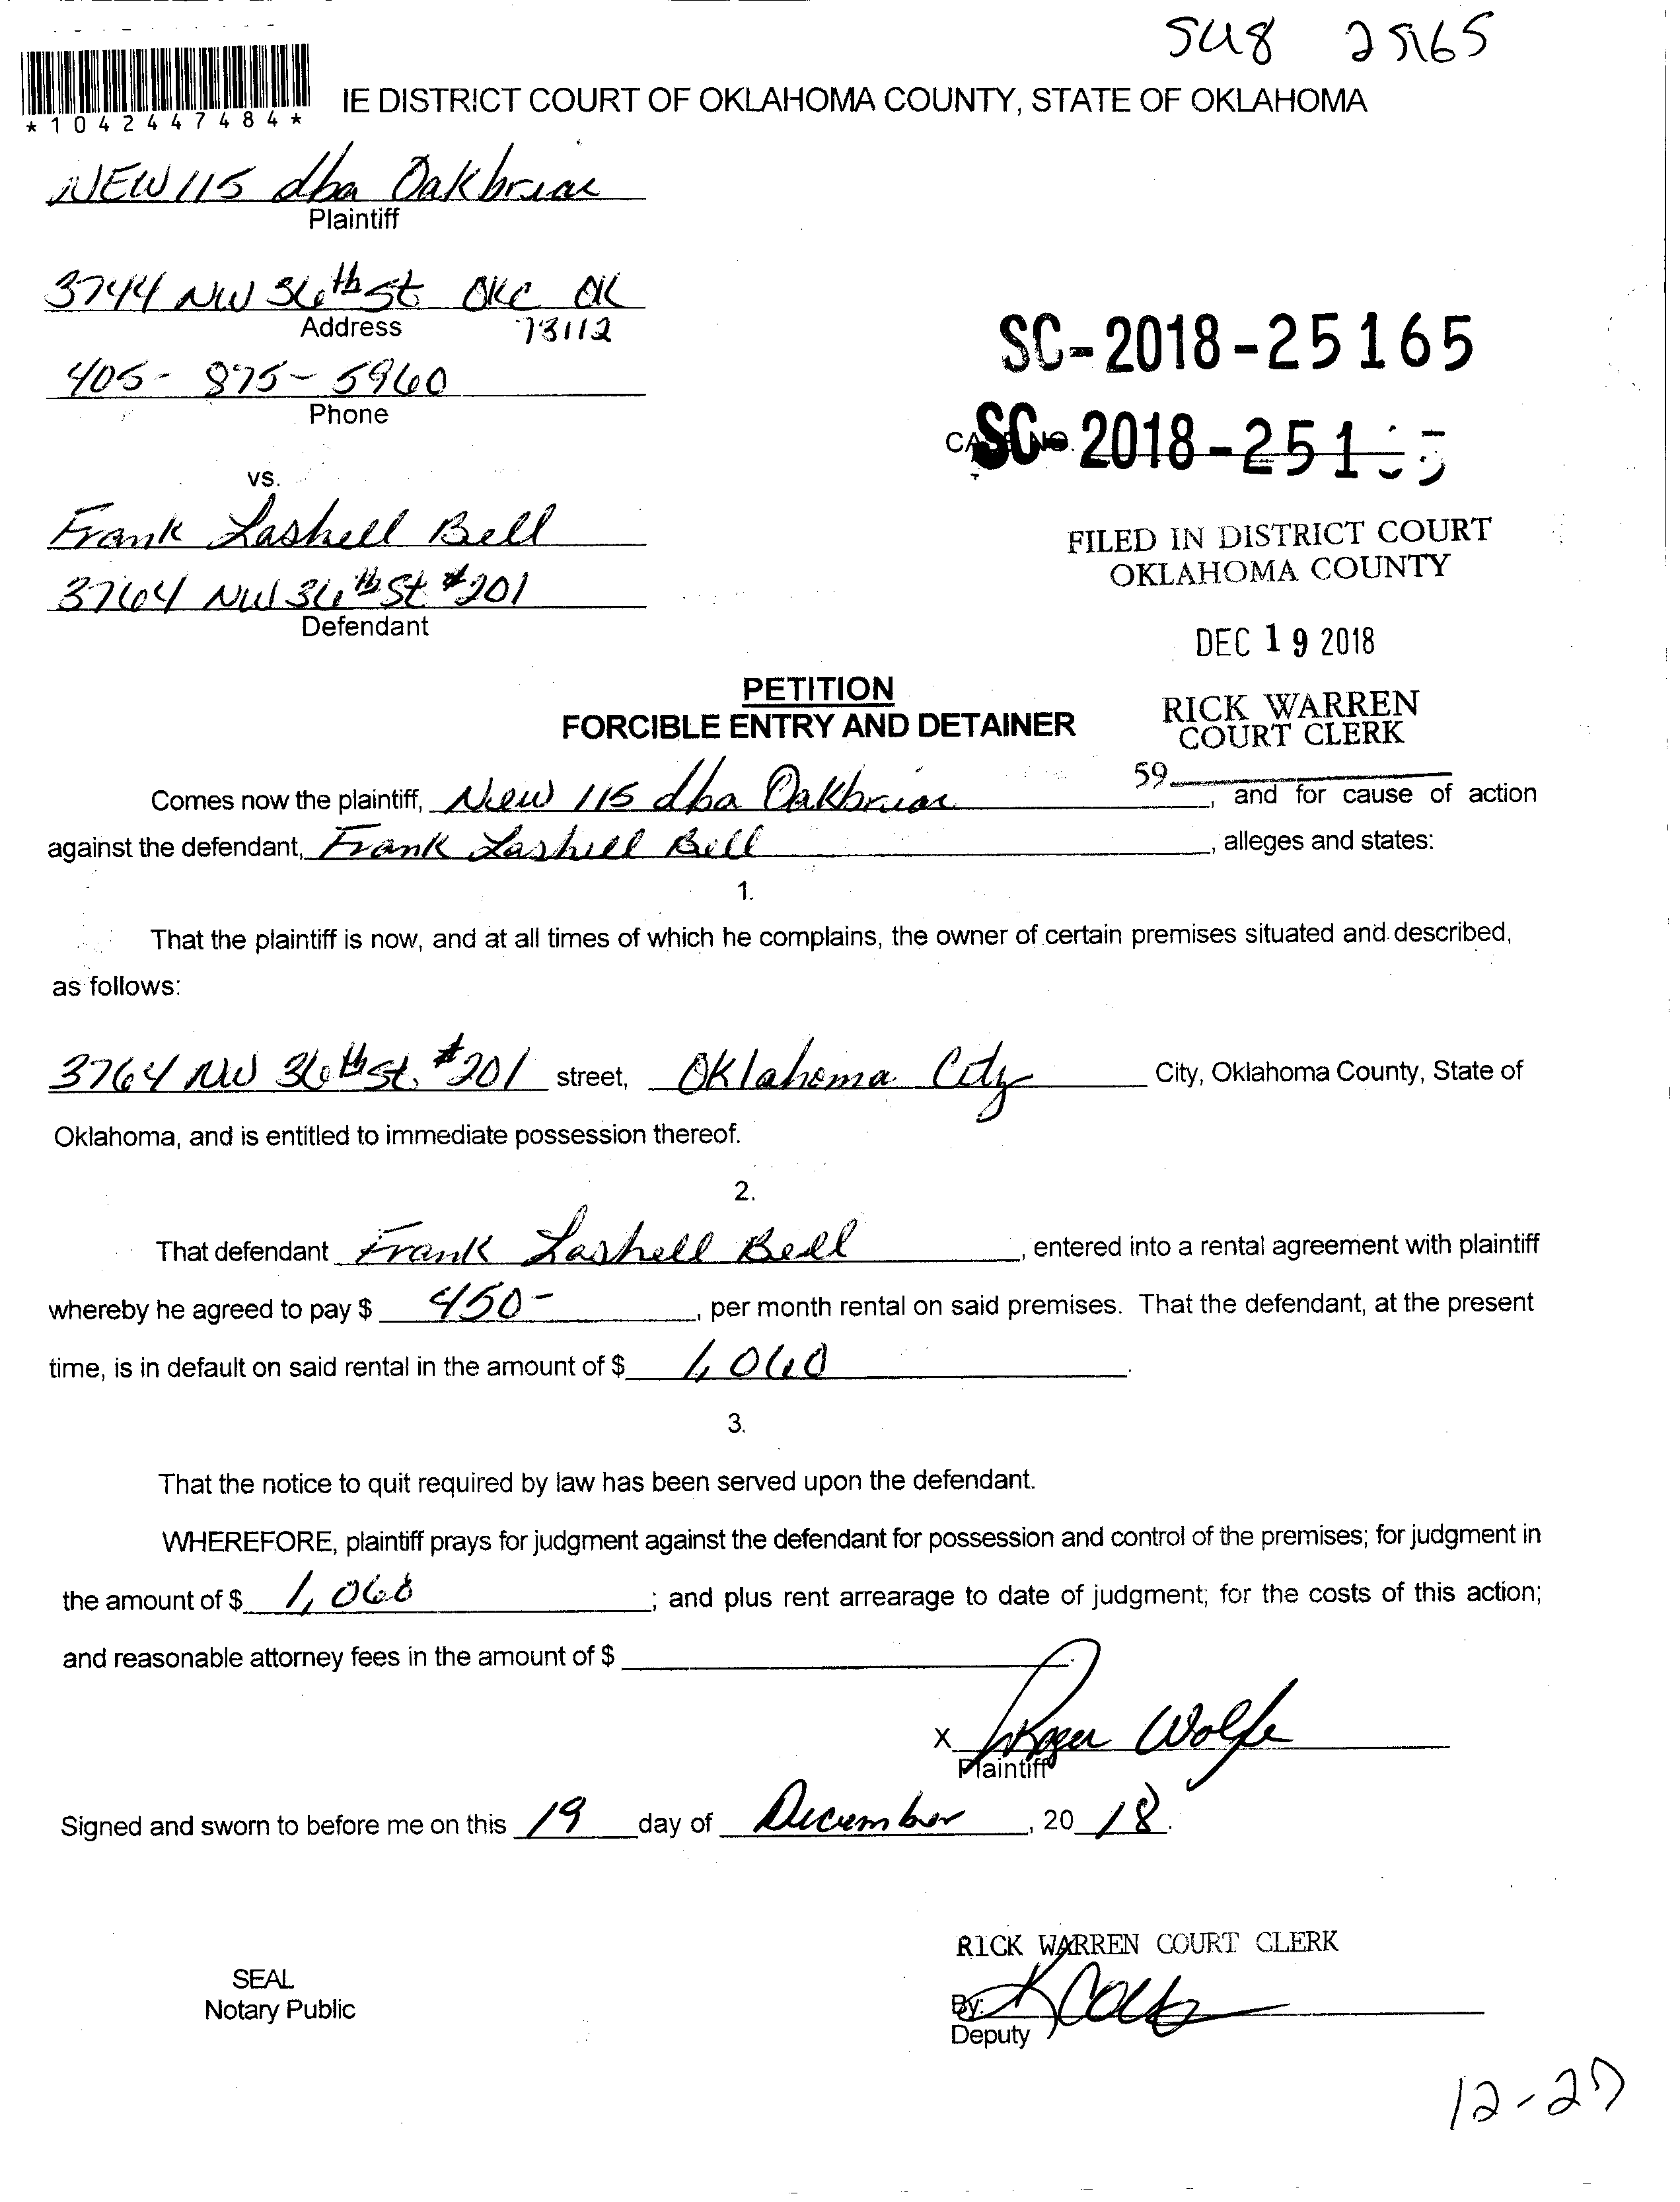 SC18 25165
*1042447484*
IE DISTRICT COURT OF OKLAHOMA COUNTY, STATE OF OKLAHOMA
NEW 115 dba Oakbriar
Plaintiff
3744 NW 36th St OKC OK
Address 73112
405-875-5960
Phone
SC-2018-25165
CASE NO. SC-2018-25165
vs.
Frank Lashell Bell
3764 NW 36th St #201
Defendant
FILED IN DISTRICT COURT
OKLAHOMA COUNTY
DEC 19 2018
RICK WARREN
COURT CLERK
59
PETITION
FORCIBLE ENTRY AND DETAINER
Comes now the plaintiff, New 115 dba Oakbriar, and for cause of action
against the defendant, Frank Lashell Bell, alleges and states:
1.
That the plaintiff is now, and at all times of which he complains, the owner of certain premises situated and described,
as follows:
3764 NW 36th St. #201 street, Oklahoma City City, Oklahoma County, State of
Oklahoma, and is entitled to immediate possession thereof.
2.
That defendant Frank Lashell Bell, entered into a rental agreement with plaintiff
whereby he agreed to pay $ 450-, per month rental on said premises. That the defendant, at the present
time, is in default on said rental in the amount of $ 1,060.
3.
That the notice to quit required by law has been served upon the defendant.
WHEREFORE, plaintiff prays for judgment against the defendant for possession and control of the premises; for judgment in
the amount of $ 1,060; and plus rent arrearage to date of judgment; for the costs of this action;
and reasonable attorney fees in the amount of $
X Roger Wolfe
Plaintiff
Signed and sworn to before me on this 19 day of December, 20 18.
RICK WARREN COURT CLERK
SEAL
Notary Public
By:
Deputy
12-27